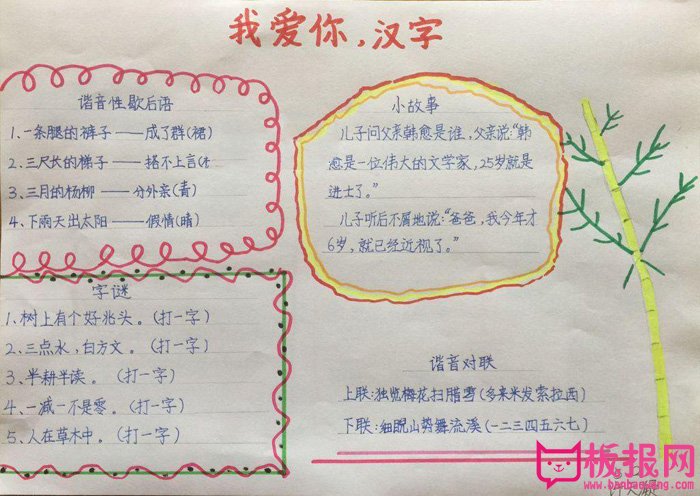 我爱你,汉字
谐音性歇后语
1、一条腿的裤子——成了群(裙)
2、三尺长的梯子——搭不上言(
3、三月的杨柳——分外亲(青)
4、下雨天出太阳——假情(晴)
字谜
1、树上有个好兆头。(打一字)
2、三点水,白方文。(打一字)
3、半耕半读。(打一字)
4、一减一不是零。(打一字)
5、人在草木中。(打一字)
小故事
儿子问父亲韩愈是谁,父亲说:“韩
愈是一位伟大的文学家,25岁就是
进士了。”
儿子听后不屑地说:“爸爸,我今年才
6岁,就已经近视了。”
谐音对联
上联:独览梅花扫腊雪(多来米发索拉西)
下联:细睨山势舞流溪(一二三四五六七)
板报网
www.banbaowang.com